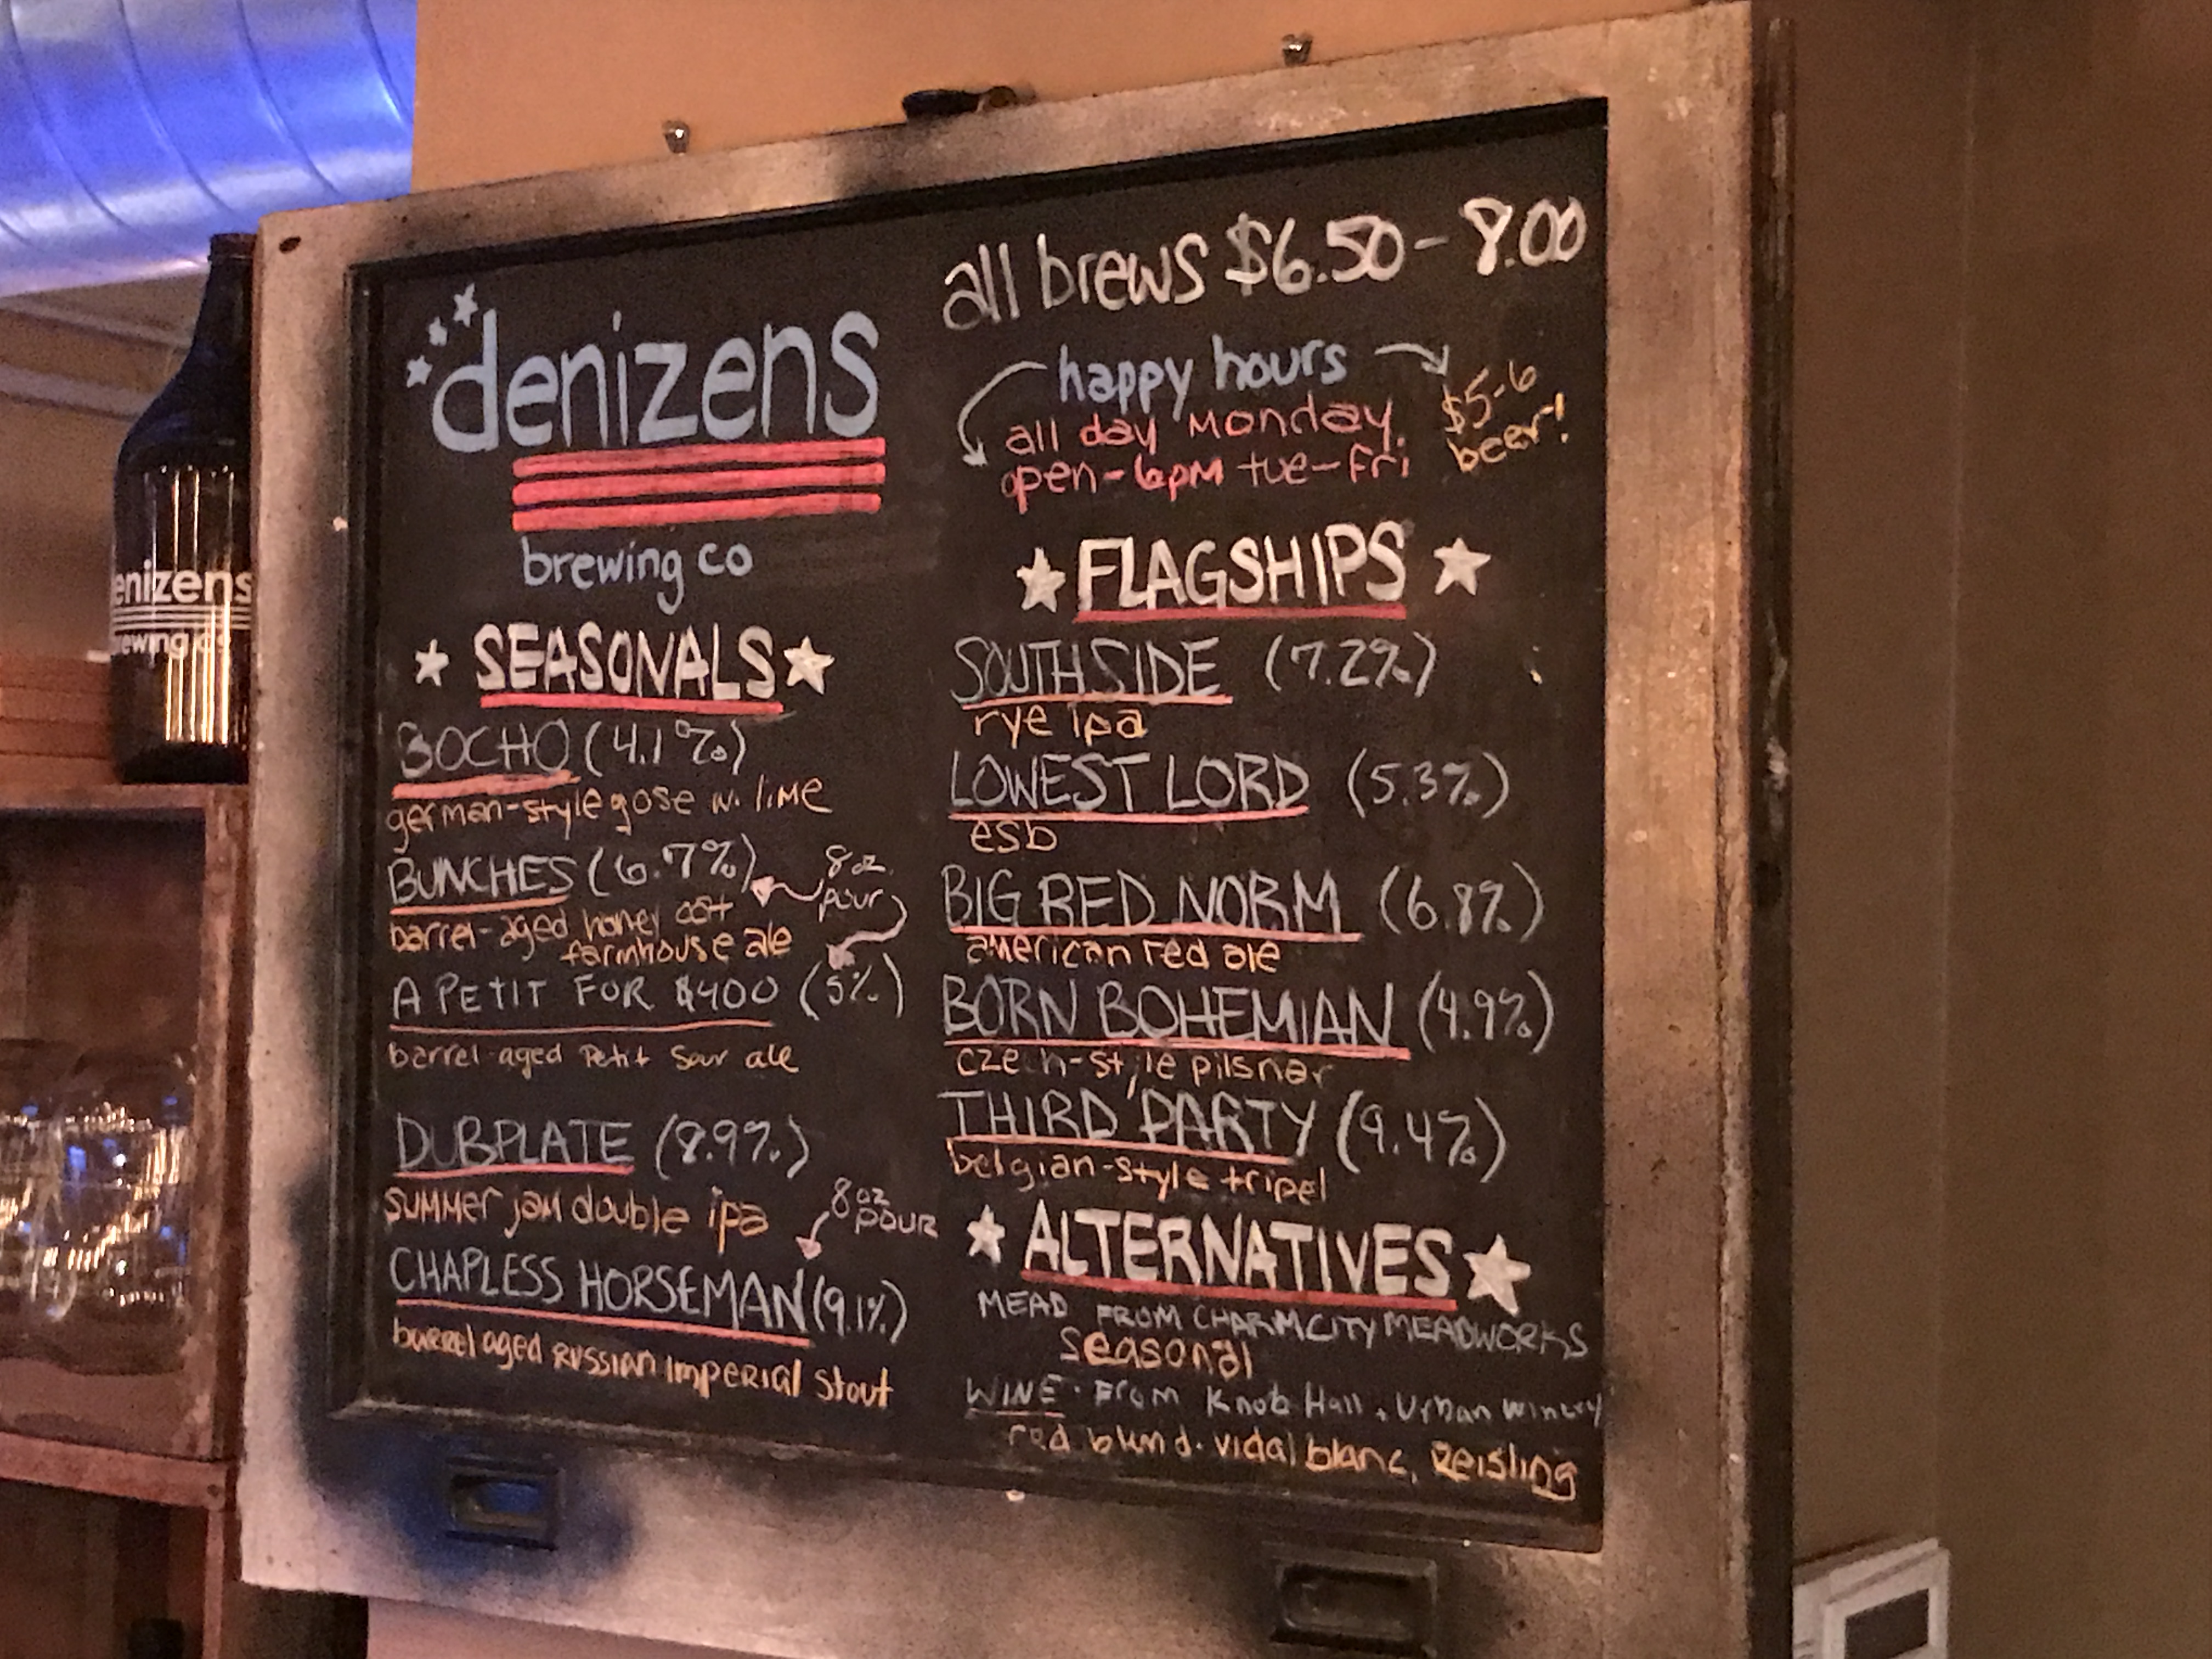 denizens
brewing co
★ SEASONALS ★
BOCHO (4.1%)
german-style gose w. lime
BUNCHES (6.7%)
8oz.
pour
barrel-aged honey oat
farmhouse ale
A PETIT FOR $400 (5%)
barrel-aged Petit Sour ale
DUBPLATE (8.9%)
summer jam double ipa
8oz
POUR
CHAPLESS HORSEMAN (9.1%)
barrel aged Russian Imperial Stout
all brews $6.50 - 8.00
happy hours
$5-6
beer!
all day Monday.
open - 6pm tue - fri
★ FLAGSHIPS ★
SOUTHSIDE (7.2%)
rye ipa
LOWEST LORD (5.3%)
esb
BIG RED NORM (6.8%)
american red ale
BORN BOHEMIAN (4.9%)
czech-style pilsner
THIRD PARTY (9.4%)
belgian-style tripel
★ ALTERNATIVES ★
MEAD FROM CHARM CITY MEADWORKS
seasonal
WINE · From Knob Hall, Urban Winery
red blend. vidal blanc, Reisling
enizens
ewing co